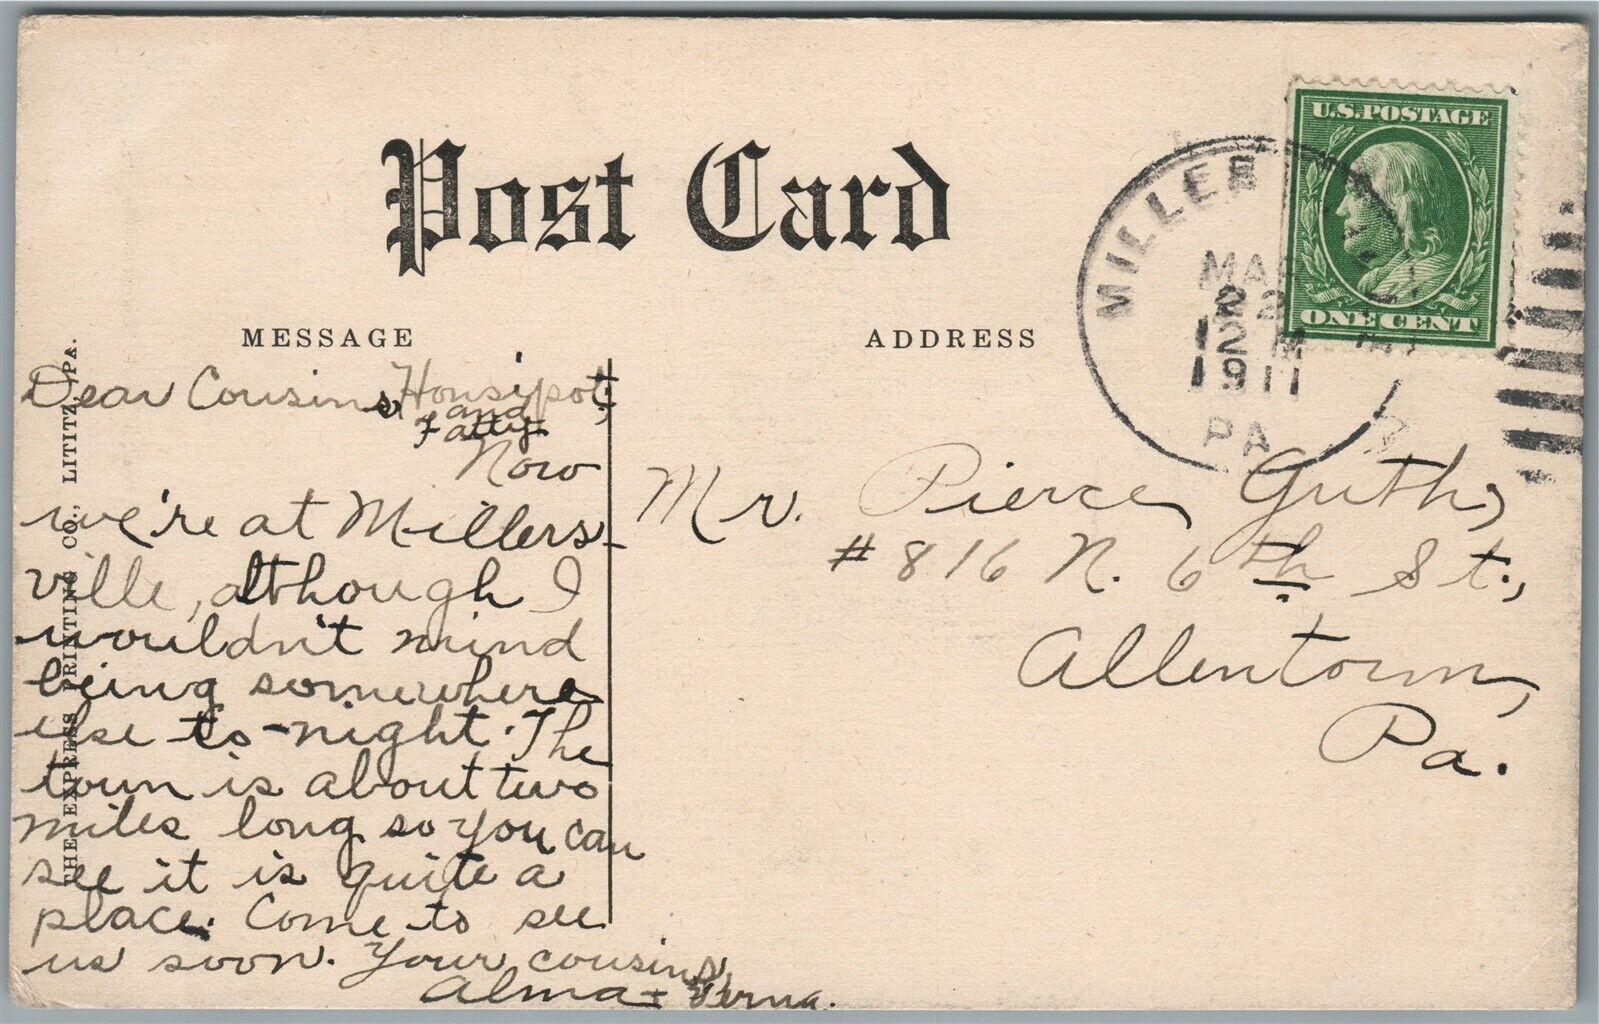 Post Card
MESSAGE
ADDRESS
THE EXPRESS PRINTING CO., LITITZ, PA.
U.S. POSTAGE
ONE CENT
MILLERS
MAR
22
12 M
1911
PA
Dear Cousins Housipot,
and
Fatty
Now
we're at Millers-
ville, although I
wouldn't mind
being somewhere
else to-night. The
town is about two
miles long so you can
see it is quite a
place. Come to see
us soon. Your cousins,
Alma + Verna.
Mr. Pierce Guth,
#816 N. 6th St.,
Allentown,
Pa.